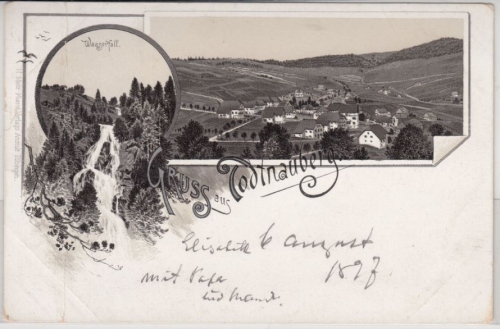 Wasserfall.
Gruss aus Todtnauberg.
Elisabeth 6 august
1897
mit Papa
und Mama.